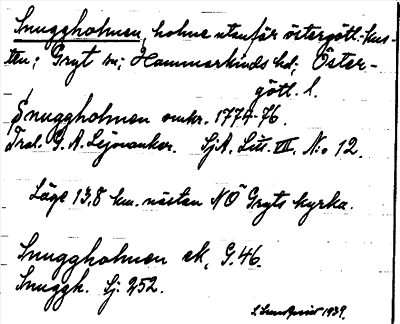 Snuggholmen, holme utanför östergöt.-kus-
ten; Gryt sn; Hammarkinds hd; Öster-
götl. l.
Snuggholmen omkr. 1774-76.
Trol. G. A. Lejonanker. SjA. Litt. III, N:o 12.
Läge 13,8 km. nästan NÖ Gryts kyrka.
Snuggholmen ek, G.46.
Snuggh. Sj. 252.
1939.